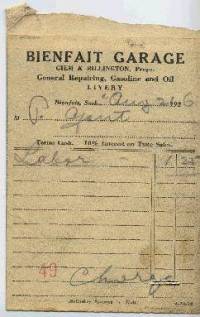 BIENFAIT GARAGE
CIEM & BILLINGTON, Props.
General Repairing, Gasoline and Oil
LIVERY
Bienfait, Sask. Aug 192 6
To
Terms Cash. 10% Interest on Past
Labor 1 25
49
Charge